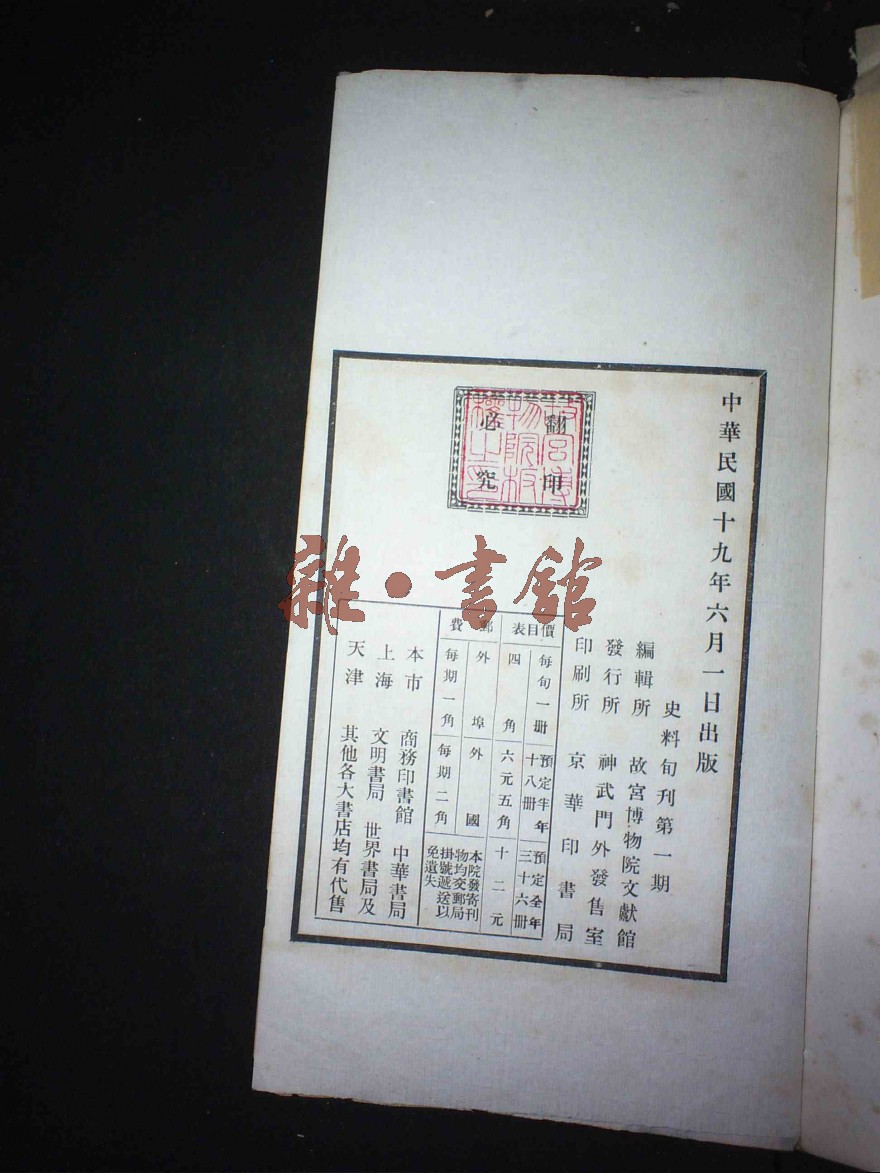 中華民國十九年六月一日出版
史料旬刊第一期
編輯所 故宮博物院文獻館
發行所 神武門外發售室
印刷所 京華印書局
翻印
必究
故宮博
物院板
權之印
價目表
每旬一册 預定半年十八册 預定全年三十六册
四角 六元五角 十二元
郵費
外埠 外國
每期一角 每期二角
本院發寄刊
物均交郵局
掛號遞送以
免遺失
本市 商務印書館 中華書局
上海 文明書局 世界書局及
天津 其他各大書店均有代售
雜·書館